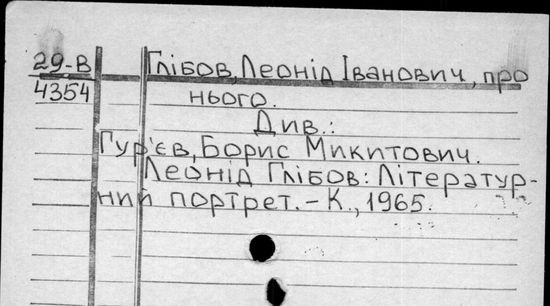 29-В Глібов, Леонід Іванович, про
4354 нього.
Див.:
Гур'єв, Борис Микитович.
Леонід Глібов: Літератур-
ний портрет. - К., 1965.